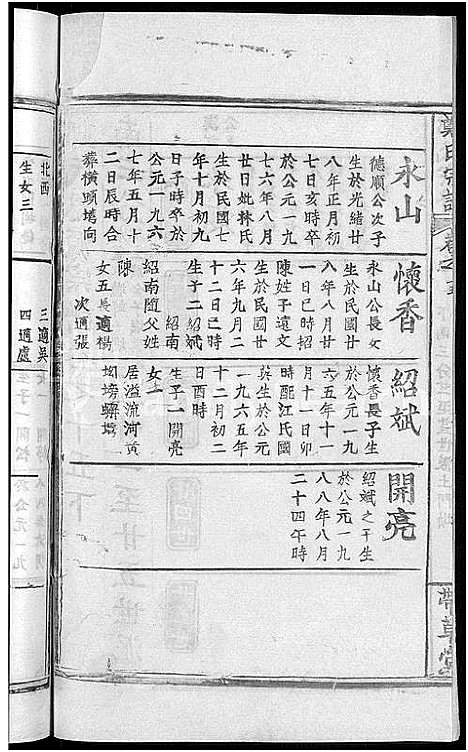 永山
德順公次子
生於光緒廿
八年正月初
七日亥時卒
於公元一九
七六年八月
廿日妣林氏
生於民國七
年十月初九
日子時卒於
公元一九六
七年五月十
二日辰時合
葬橫頭塆向
懷香
永山公長女
生於民國廿
八年八月廿
一日巳時招
陳姓子遠文
生於民國廿
六年九月二
十二日巳時
生子二紹斌
紹南
紹南随父姓
陳
女五長適楊
次適張
紹斌
懷香長子生
於公元一九
六五年十一
月十一日卯
時配江氏國
英生於公元
一九六五年
十二月初二
日酉時
生子一開亮
女一
居溢流河黃
開亮
紹斌之子生
於公元一九
八八年八月
二十四午時
帶草堂
北西
生女三
三適吳
四適盧